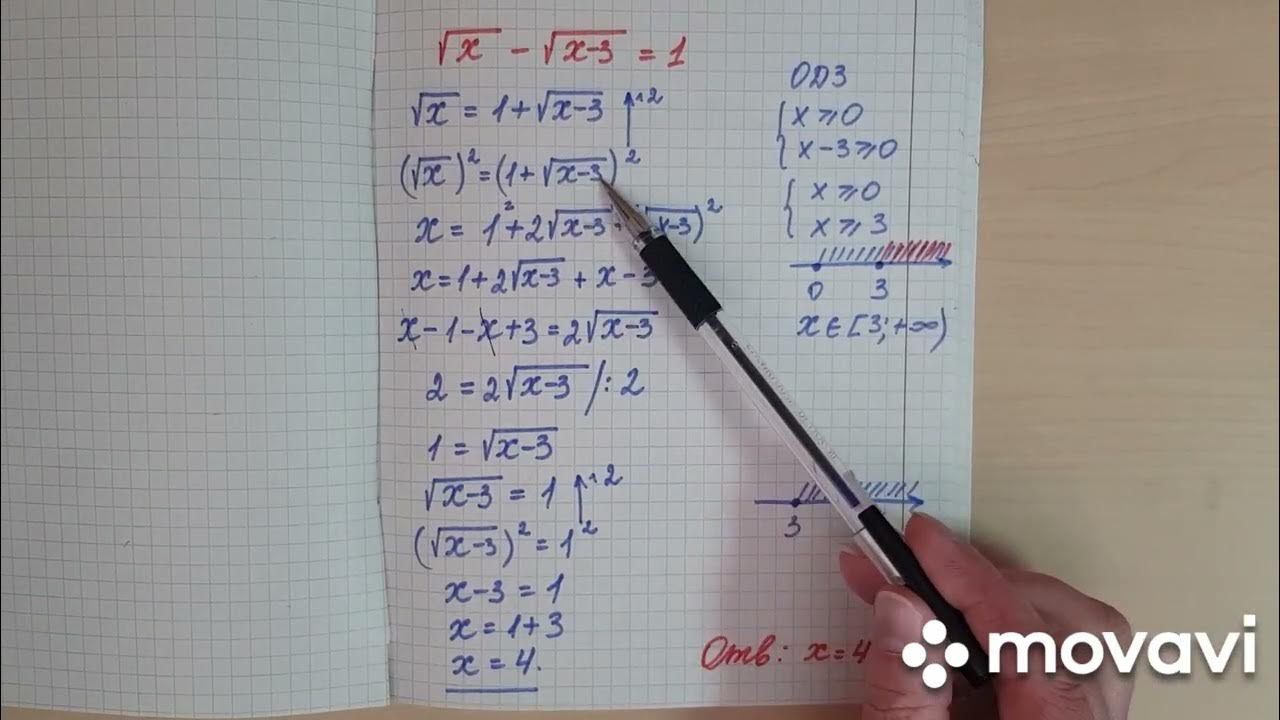 √x − √(x−3) = 1
√x = 1 + √(x−3) ↑^2
(√x)² = (1 + √(x−3))²
x = 1² + 2√(x−3) + (√(x−3))²
x = 1 + 2√(x−3) + x − 3
x − 1 − x + 3 = 2√(x−3)
2 = 2√(x−3) /: 2
1 = √(x−3)
√(x−3) = 1 ↑^2
(√(x−3))² = 1²
x − 3 = 1
x = 1 + 3
x = 4.
ОДЗ
{ x ⩾ 0
x − 3 ⩾ 0
{ x ⩾ 0
x ⩾ 3
0 3
x ∈ [3; +∞)
3
Отв: x = 4
movavi